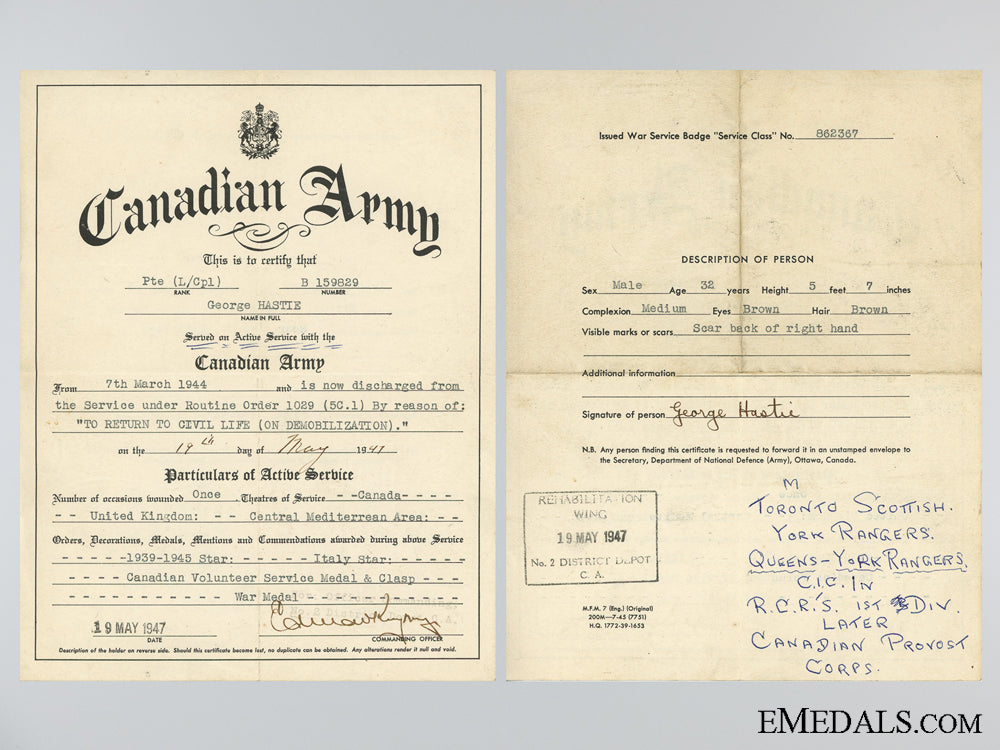 Canadian Army
This is to certify that
Pte (L/Cpl) B 159829
RANK NUMBER
George HASTIE
NAME IN FULL
Served on Active Service with the
Canadian Army
From 7th March 1944 and is now discharged from
the Service under Routine Order 1029 (5C.1) By reason of:
"TO RETURN TO CIVIL LIFE (ON DEMOBILIZATION)."
on the 19th day of May 1947
Particulars of Active Service
Number of occasions wounded Once . Theatres of Service - -Canada- - - -
- - United Kingdom: - - Central Mediterrean Area: - -
Orders, Decorations, Medals, Mentions and Commendations awarded during above Service
- - - - -1939-1945 Star: - - - - - Italy Star: - - - - -
- - - - Canadian Volunteer Service Medal & Clasp - - -
- - - - - - - - - - - War Medal - - - - - - - - - - -
No. 2 District
19 MAY 1947
DATE
COMMANDING OFFICER
Description of the holder on reverse side. Should this certificate become lost, no duplicate can be obtained. Any alterations render it null and void.
Issued War Service Badge "Service Class" No. 862367
DESCRIPTION OF PERSON
Sex Male Age 32 years Height 5 feet 7 inches
Complexion Medium Eyes Brown Hair Brown
Visible marks or scars Scar back of right hand
Additional information
Signature of person George Hastie
N.B. Any person finding this certificate is requested to forward it in an unstamped envelope to
the Secretary, Department of National Defence (Army), Ottawa, Canada.
REHABILITATION
WING
19 MAY 1947
No. 2 DISTRICT DEPOT
C. A.
M.F.M. 7 (Eng.) (Original)
200M—7-45 (7751)
H.Q. 1772-39-1653
M
TORONTO SCOTTISH.
YORK RANGERS.
QUEENS-YORK RANGERS.
C.I.C. IN
R.C.R'S. 1ST DIV.
LATER
CANADIAN PROVOST
CORPS.
EMEDALS.COM